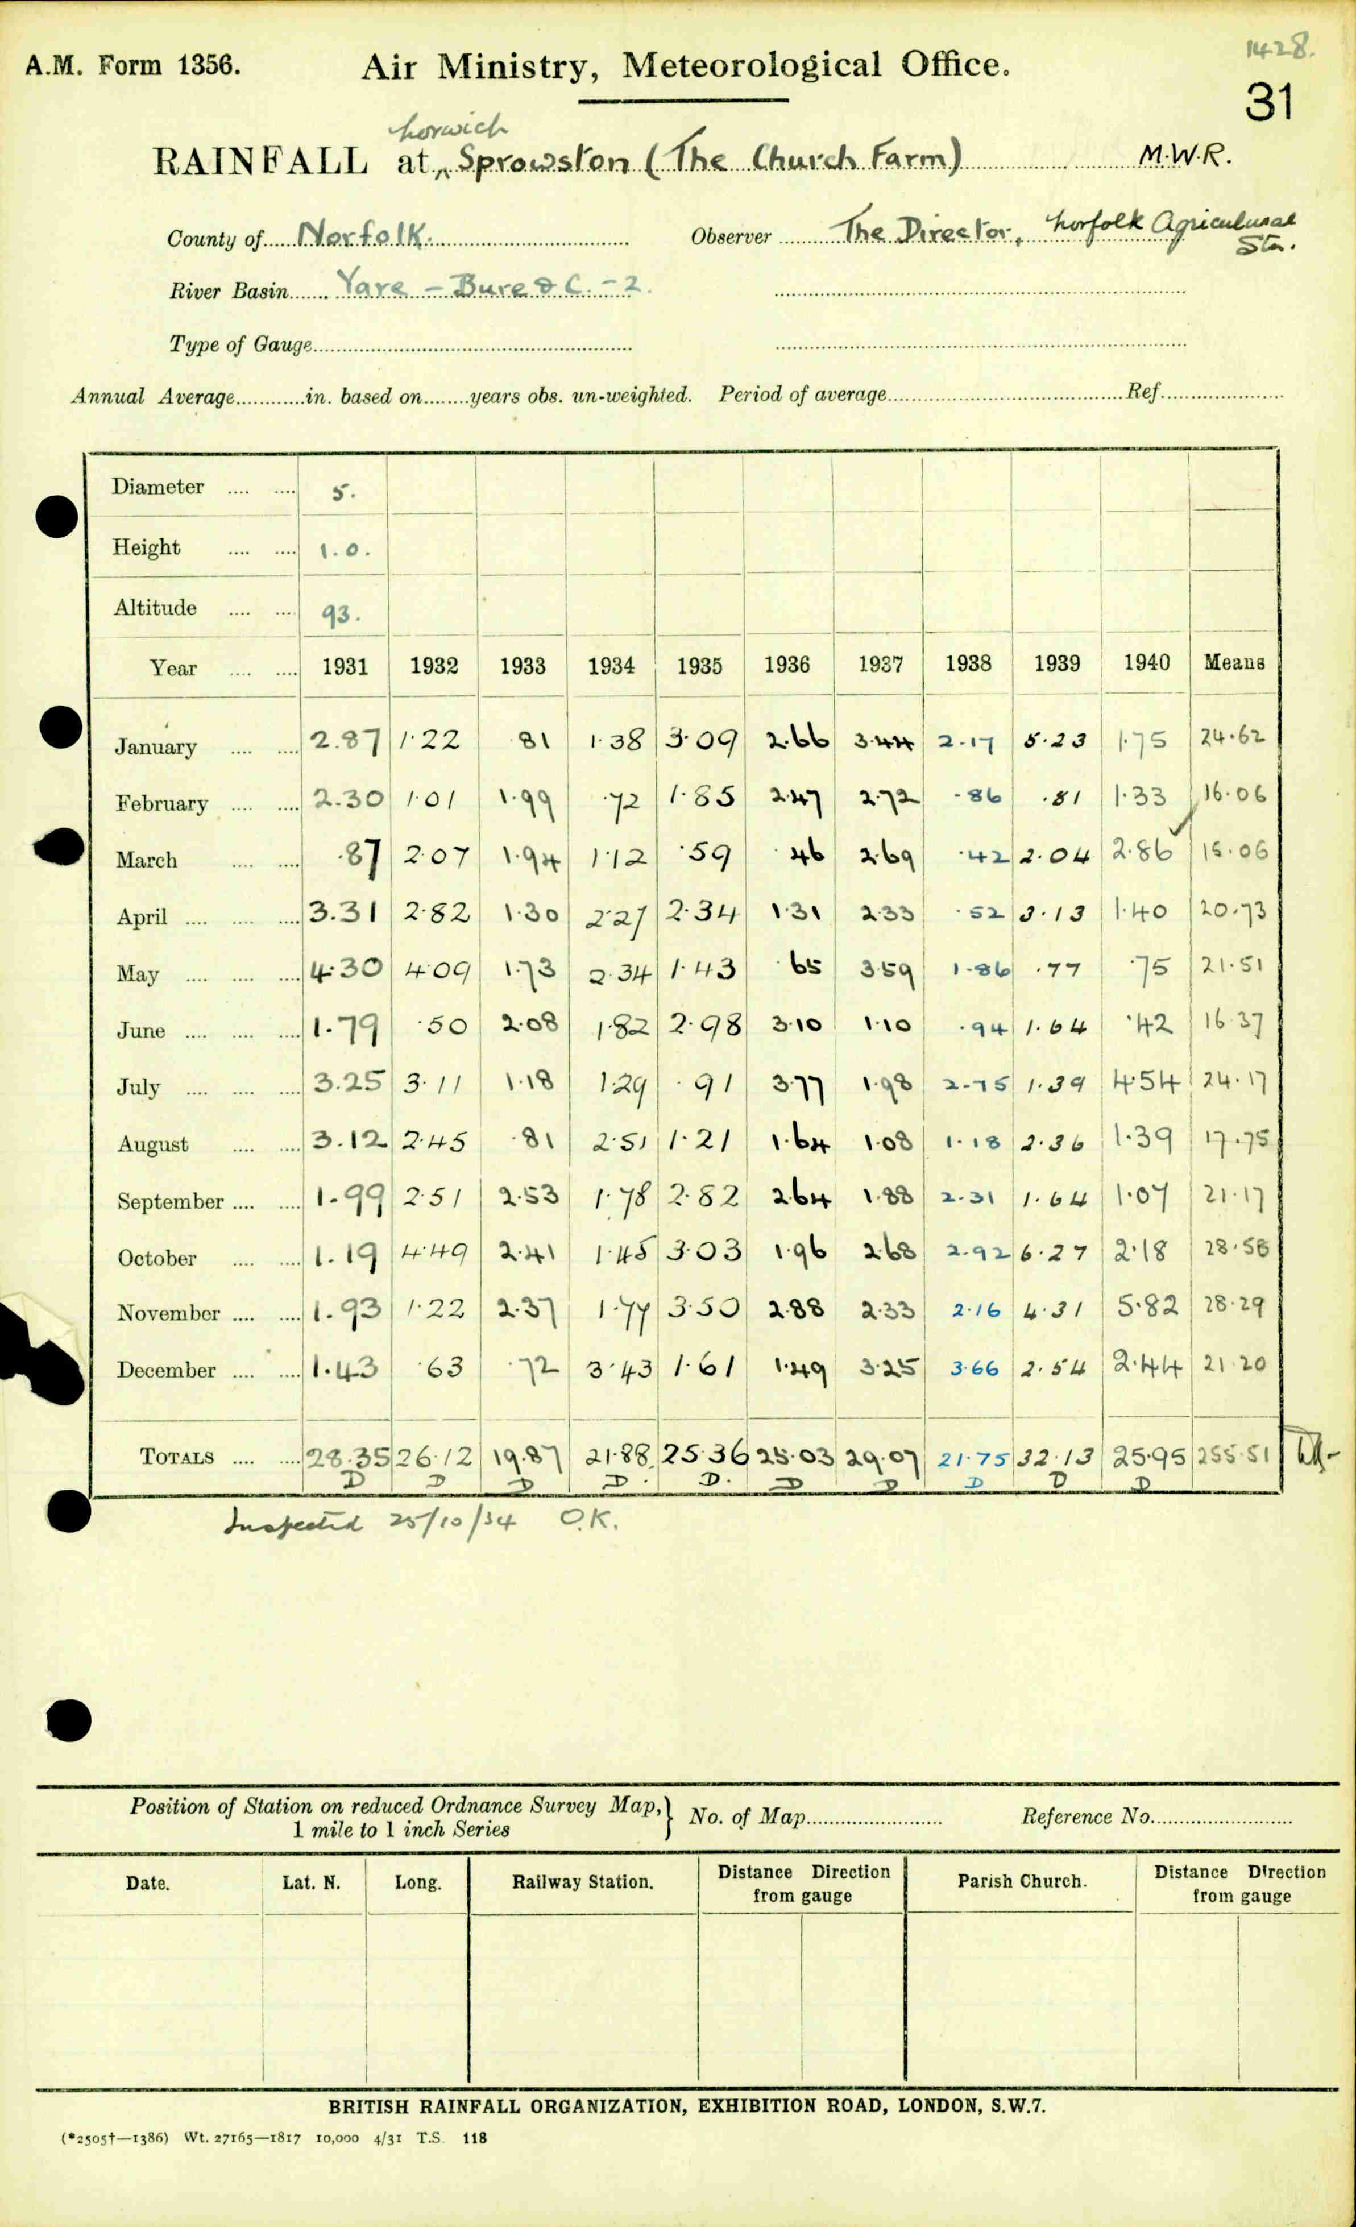 1428.
A.M. Form 1356. Air Ministry, Meteorological Office.
31
Norwich
RAINFALL at Sprowston (The Church Farm) M.W.R.
County of Norfolk. Observer The Director, Norfolk Agricultural Stn.
River Basin Yare – Bure & C. – 2.
Type of Gauge
Annual Average in. based on years obs. un-weighted. Period of average Ref.
Diameter 5.
Height 1.0.
Altitude 93.
Year 1931 1932 1933 1934 1935 1936 1937 1938 1939 1940 Means
January 2.87 1.22 .81 1.38 3.09 2.66 3.44 2.17 5.23 1.75 24.62
February 2.30 1.01 1.99 .72 1.85 2.47 2.72 .86 .81 1.33 16.06
March .87 2.07 1.94 1.12 .59 .46 2.69 .42 2.04 2.86 15.06
April 3.31 2.82 1.30 2.27 2.34 1.31 2.33 .52 3.13 1.40 20.73
May 4.30 4.09 1.73 2.34 1.43 .65 3.59 1.86 .77 .75 21.51
June 1.79 .50 2.08 1.82 2.98 3.10 1.10 .94 1.64 .42 16.37
July 3.25 3.11 1.18 1.29 .91 3.77 1.98 2.75 1.39 4.54 24.17
August 3.12 2.45 .81 2.51 1.21 1.64 1.08 1.18 2.36 1.39 17.75
September 1.99 2.51 2.53 1.78 2.82 2.64 1.88 2.31 1.64 1.07 21.17
October 1.19 4.49 2.41 1.45 3.03 1.96 2.68 2.92 6.27 2.18 28.58
November 1.93 1.22 2.37 1.77 3.50 2.88 2.33 2.16 4.31 5.82 28.29
December 1.43 .63 .72 3.43 1.61 1.49 3.25 3.66 2.54 2.44 21.20
TOTALS 28.35 26.12 19.87 21.88 25.36 25.03 29.07 21.75 32.13 25.95 255.51
D D D D D. D D D D D
Inspected 25/10/34 O.K.
Position of Station on reduced Ordnance Survey Map, } No. of Map Reference No.
1 mile to 1 inch Series
Date. Lat. N. Long. Railway Station. Distance Direction from gauge Parish Church. Distance Direction from gauge
BRITISH RAINFALL ORGANIZATION, EXHIBITION ROAD, LONDON, S.W.7.
(*2505†—1386) Wt. 27165—1817 10,000 4/31 T.S. 118